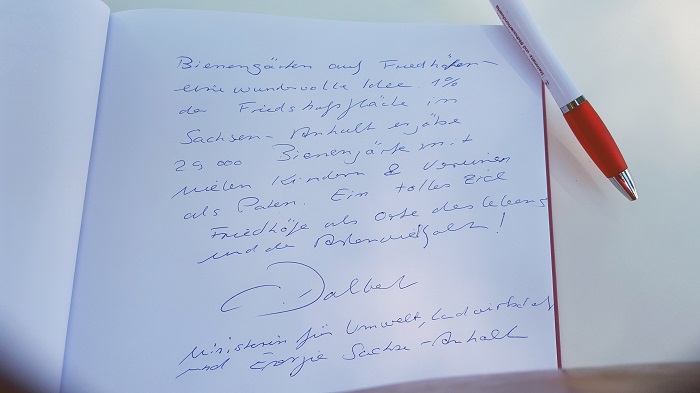 Bienengärten auf Friedhöfen –
eine wundervolle Idee. 1%
der Friedhofsfläche in
Sachsen-Anhalt ergäbe
29 000 Bienengärten mit
vielen Kindern & Vereinen
als Paten. Ein tolles Ziel
Friedhöfe als Orte des Lebens
und der Artenvielfalt!
Dalbert
Ministerin für Umwelt, Landwirtschaft
und Energie Sachsen-Anhalt